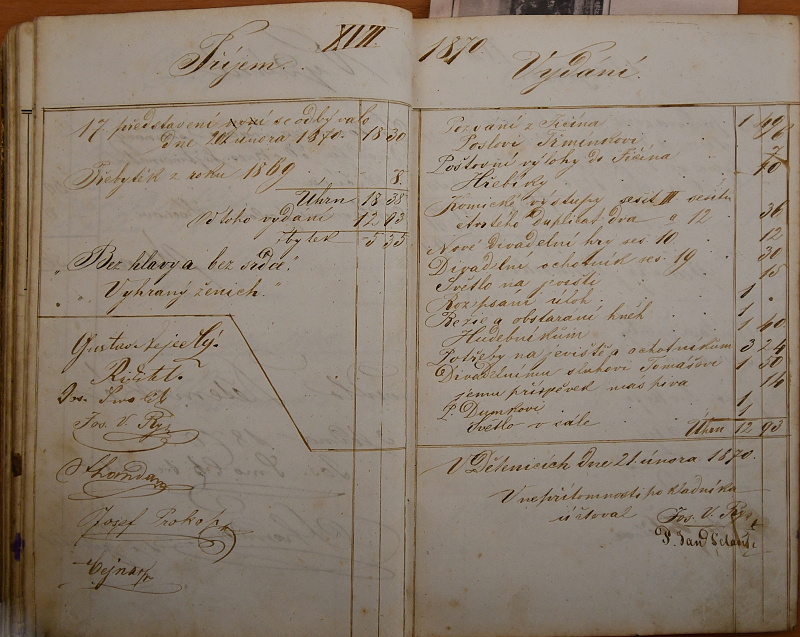 XVII
Příjem.
17. představení se odbývalo
dne 20. února 1870. 18 30
Přebytek z roku 1869 8
Úhrn 18 38
Z toho vydání 12 93
zbytek 5 35
„Bez hlavy a bez srdce."
„Vyhraný ženich."
Gustav Nejedlý.
Jos. V. Ryš
Josef Prokop
Cejnar
1870
Vydání
Pozvání z Jičína 1 49
Poslovi Firmínkovi
Poštovní výlohy do Jičína
Hřebíky
Komické výstupy sešit III sešitu
čtvrtého duplikát dva a 12 36
Nové divadelní hry seš. 10. 12
Divadelní ochotník seš. 19 30
Světlo na jevišti 15
Rozepsání úloh 1
Režie a obstarání knéh 1
Hudebníkům 1 40
Potřeby na jeviště a ochotníkům 3 24
Divadelnímu sluhovi Tomášovi 1 50
jemu příspěvek mas piva 14
P. Dymkovi 1
Světlo v sále 1
Úhrn 12 93
V Dětenicích dne 21. února 1870.
V nepřítomnosti pokladníka
účtoval Jos. V. Ryš
P. Jan